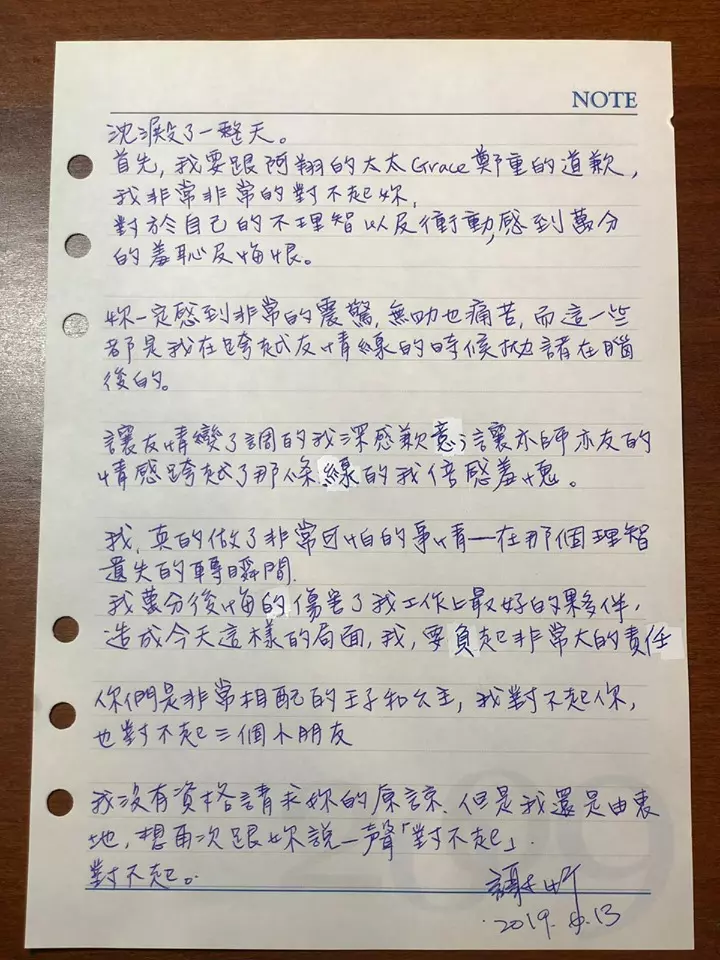 NOTE
沈澱了一整天。
首先,我要跟阿翔的太太Grace鄭重的道歉,
我非常非常的對不起妳,
對於自己的不理智以及衝動,感到萬分
的羞恥及悔恨。
妳一定感到非常的震驚,無助也痛苦,而這一些
都是我在跨越友情線的時候拋諸在腦
後的。
讓友情變了調的我深感歉意;讓亦師亦友的
情感跨越了那條線的我倍感羞愧。
我,真的做了非常可怕的事情—在那個理智
遺失的轉瞬間.
我萬分後悔的傷害了我工作上最好的夥伴,
造成今天這樣的局面,我,要負起非常大的責任
你們是非常相配的王子和公主,我對不起你,
也對不起三個小朋友
我沒有資格請求妳的原諒.但是我還是由衷
地,想再次跟妳說一聲「對不起」.
對不起。
2019. 6.13